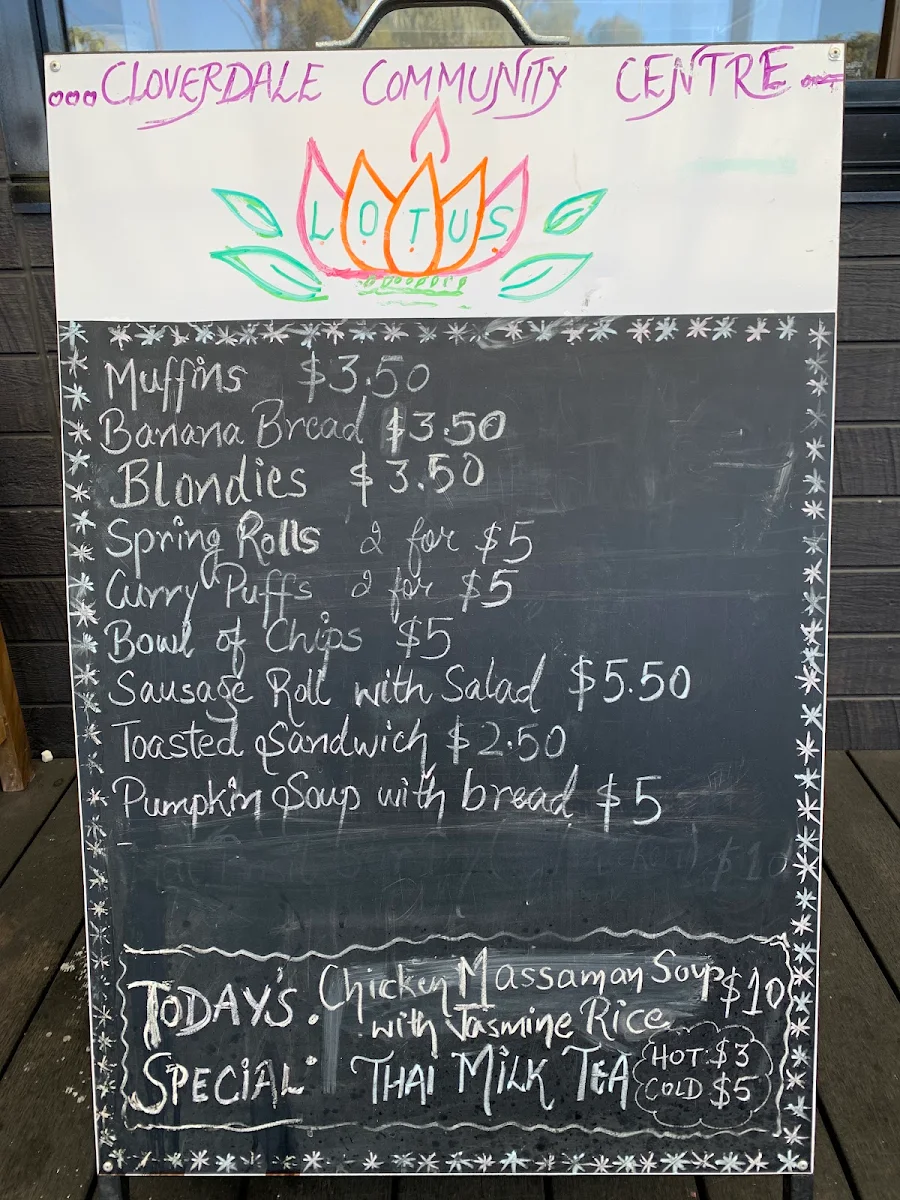 CLOVERDALE COMMUNITY CENTRE
LOTUS
Muffins $3.50
Banana Bread $3.50
Blondies $3.50
Spring Rolls 2 for $5
Curry Puffs 2 for $5
Bowl of Chips $5
Sausage Roll with Salad $5.50
Toasted Sandwich $2.50
Pumpkin Soup with bread $5
$10
TODAY'S Chicken Massaman Soup $10
with Jasmine Rice
SPECIAL: THAI MILK TEA HOT: $3
COLD $5